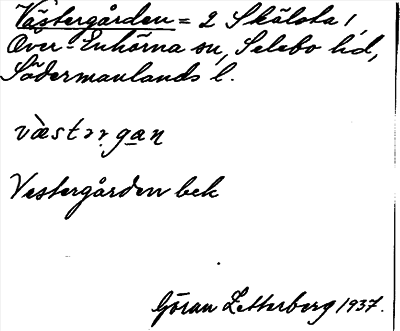 Västergården = 2 Skälsta 1,
Över-Enhörna sn, Selebo hd,
Södermanlands l.
væ̀stərgan
Vestergården bek
Göran Zetterberg 1937.